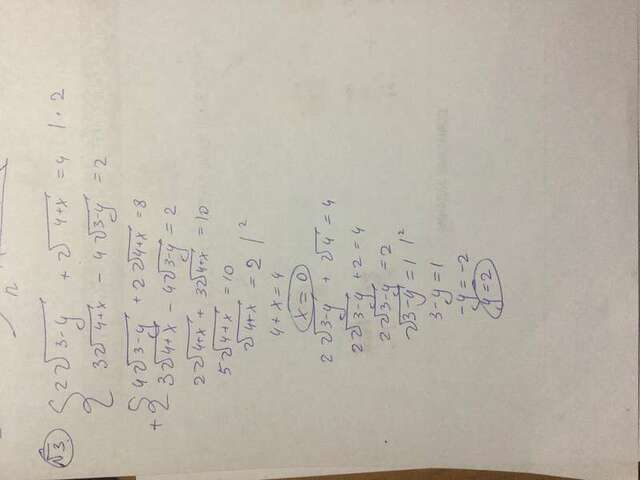 √3. { 2√3-y + √4+x = 4 | · 2
3√4+x - 4√3-y = 2
+ { 4√3-y + 2√4+x = 8
3√4+x - 4√3-y = 2
2√4+x + 3√4+x = 10
5√4+x = 10
√4+x = 2 |²
4 + x = 4
x = 0
2√3-y + √4 = 4
2√3-y + 2 = 4
2√3-y = 2
√3-y = 1 |²
3-y = 1
-y = -2
y = 2